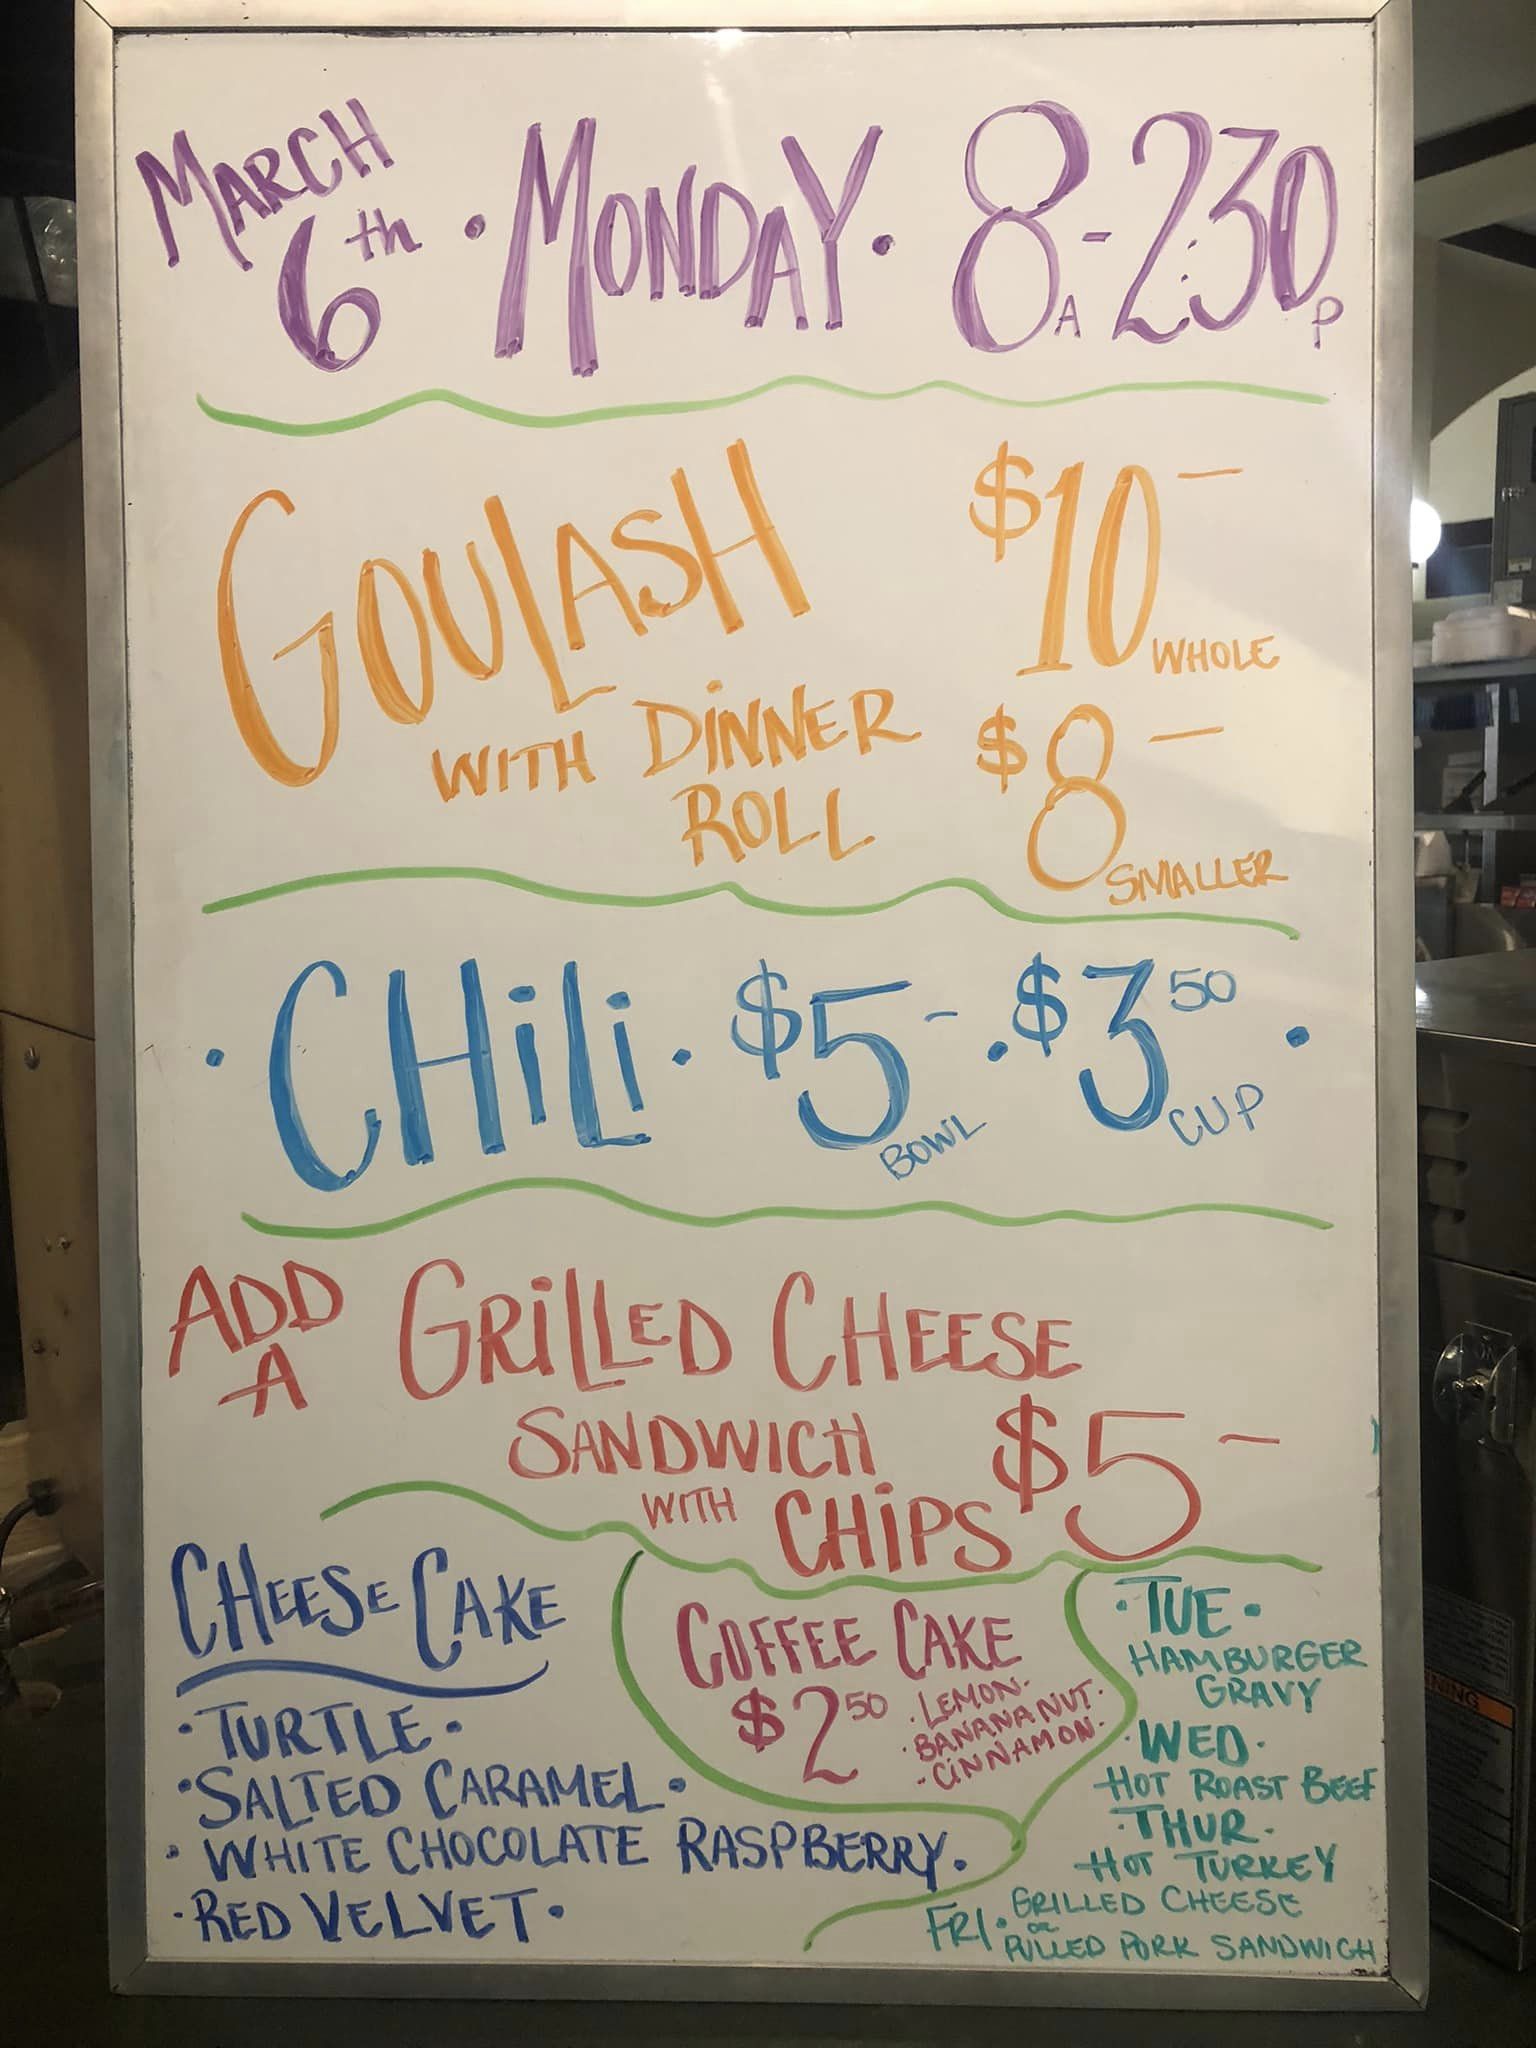 MARCH 6th · MONDAY · 8A - 2:30P
GOULASH $10 - WHOLE
WITH DINNER $8 - SMALLER
ROLL
· CHiLi · $5 - BOWL · $3 50 CUP ·
ADD A GRiLLED CHEESE
SANDWICH $5 -
WITH CHiPS
CHEESE CAKE
· TURTLE ·
· SALTED CARAMEL ·
· WHITE CHOCOLATE RASPBERRY ·
· RED VELVET ·
COFFEE CAKE
$2 50
· LEMON ·
· BANANA NUT ·
· CINNAMON ·
· TUE ·
HAMBURGER
GRAVY
· WED ·
HOT ROAST BEEF
· THUR ·
HOT TURKEY
FRI · GRILLED CHEESE
or
PULLED PORK SANDWICH